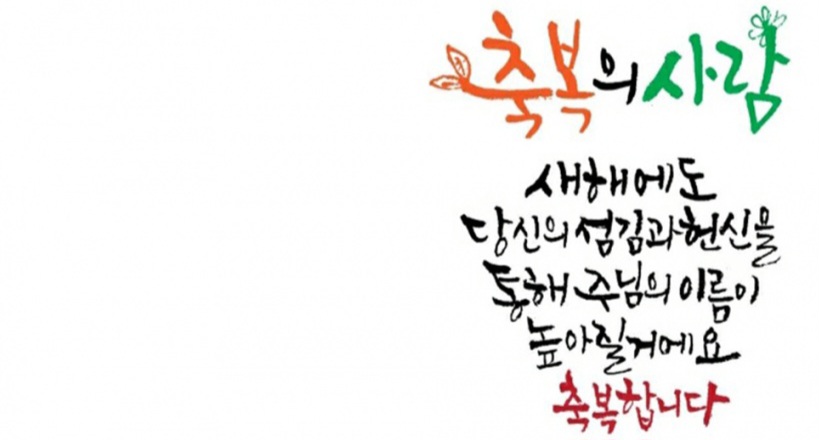 축복의 사람
새해에도
당신의 섬김과 헌신을
통해 주님의 이름이
높아질거에요
축복합니다